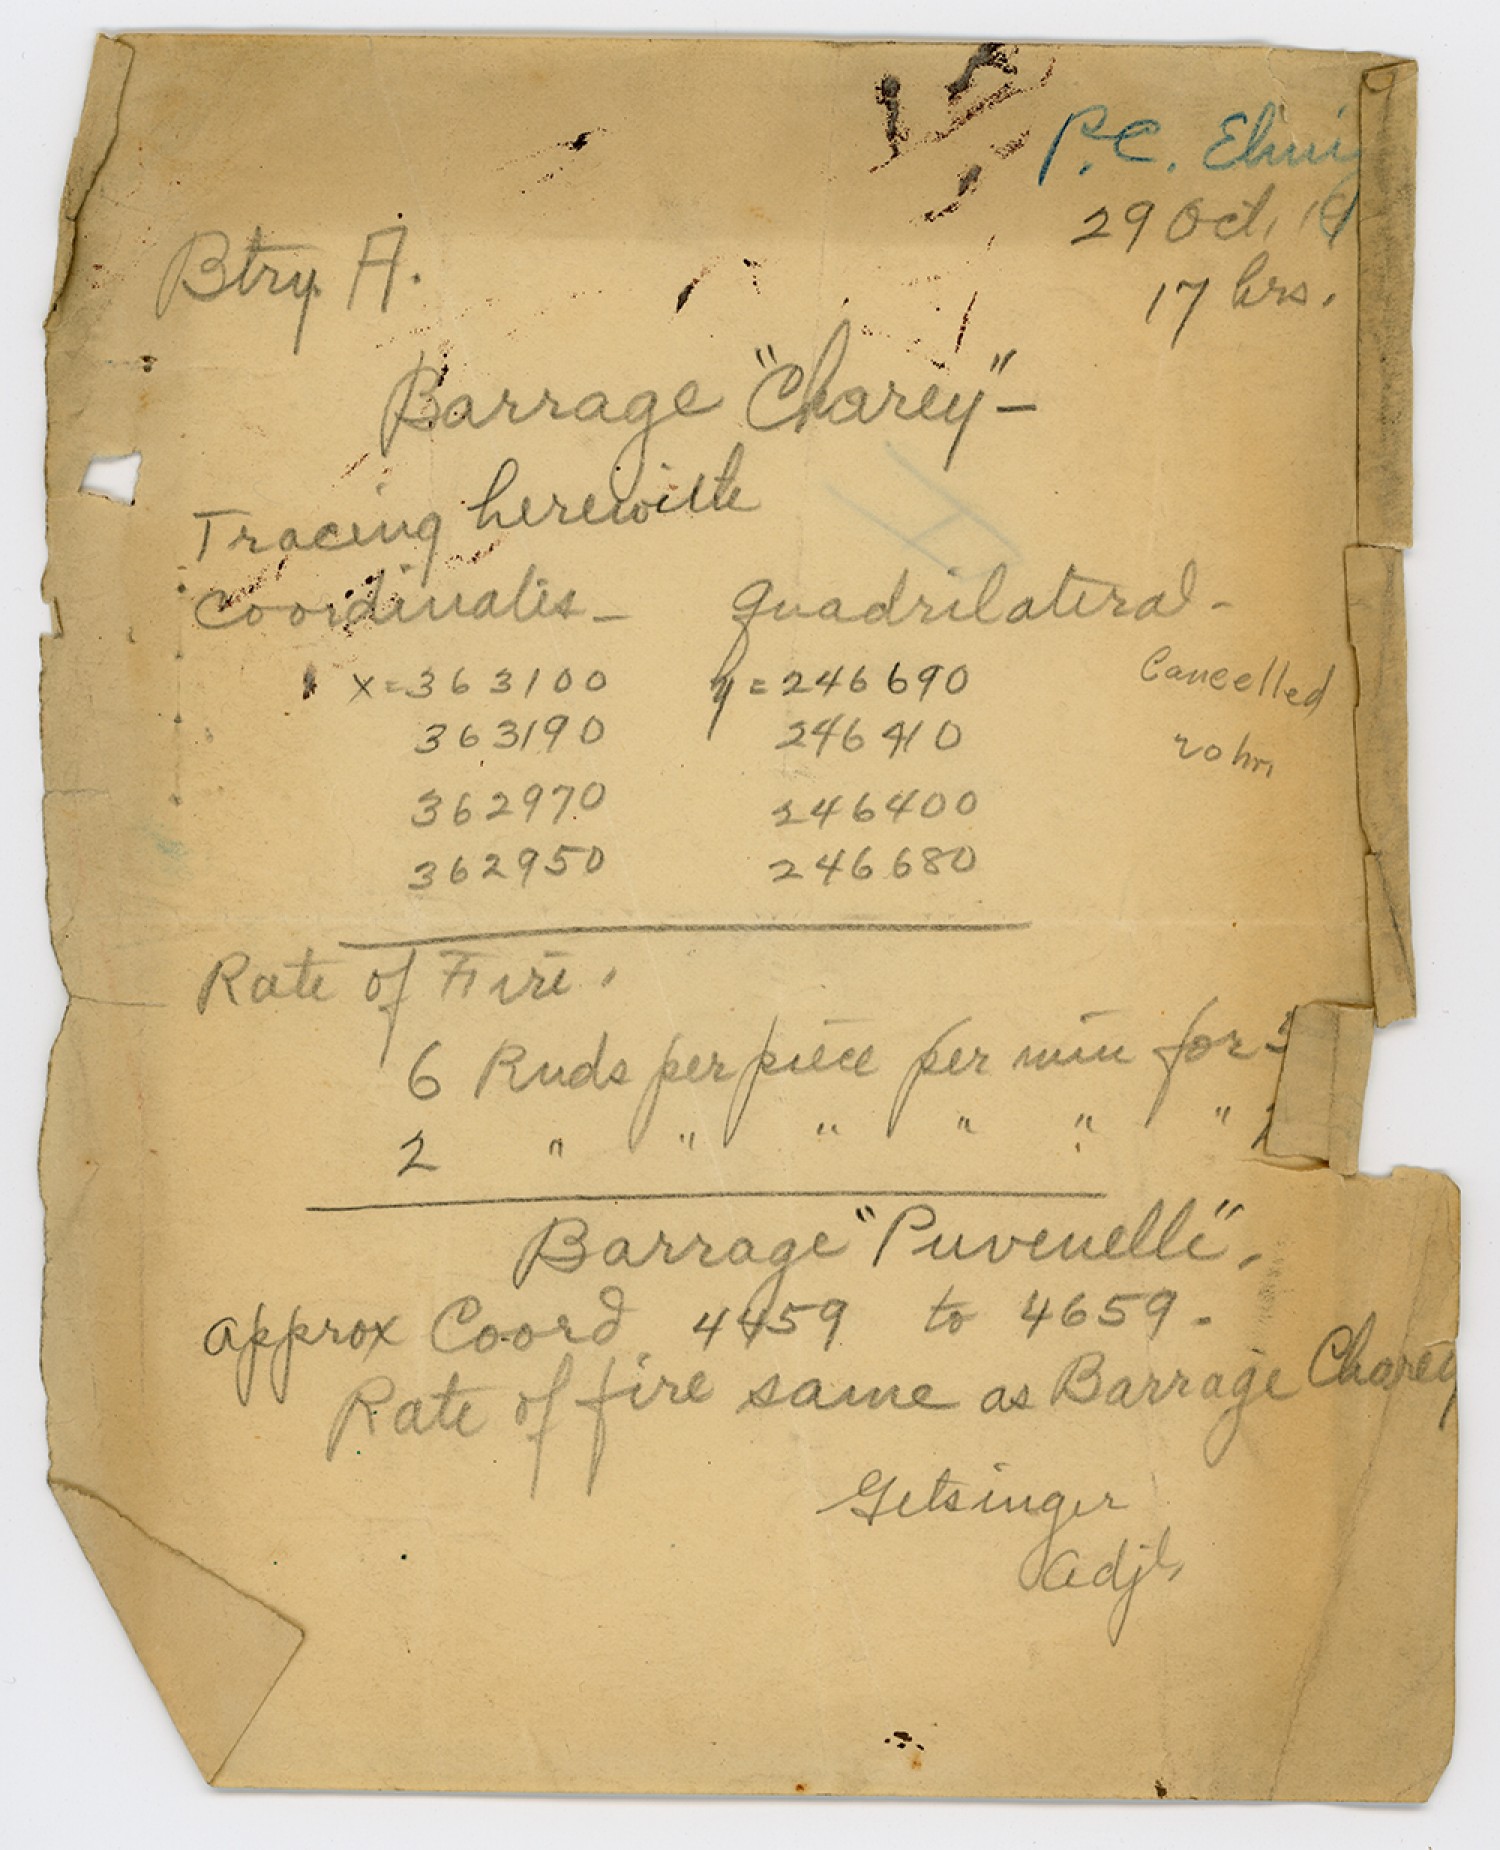 P.C.
29 Oct.
17 hrs.
Btry. A.
Barrage "Charey" –
Tracing herewith
Coordinates – quadrilateral –
x = 363100 y = 246690 Cancelled
363190 246410 20 hrs
362970 246400
362950 246680
Rate of Fire.
6 Rnds per piece per min for
2 " " " " " "
Barrage "Puvenelle".
approx Coord. 4459 to 4659.
Rate of fire same as Barrage Charey
Getsinger
Adjt.